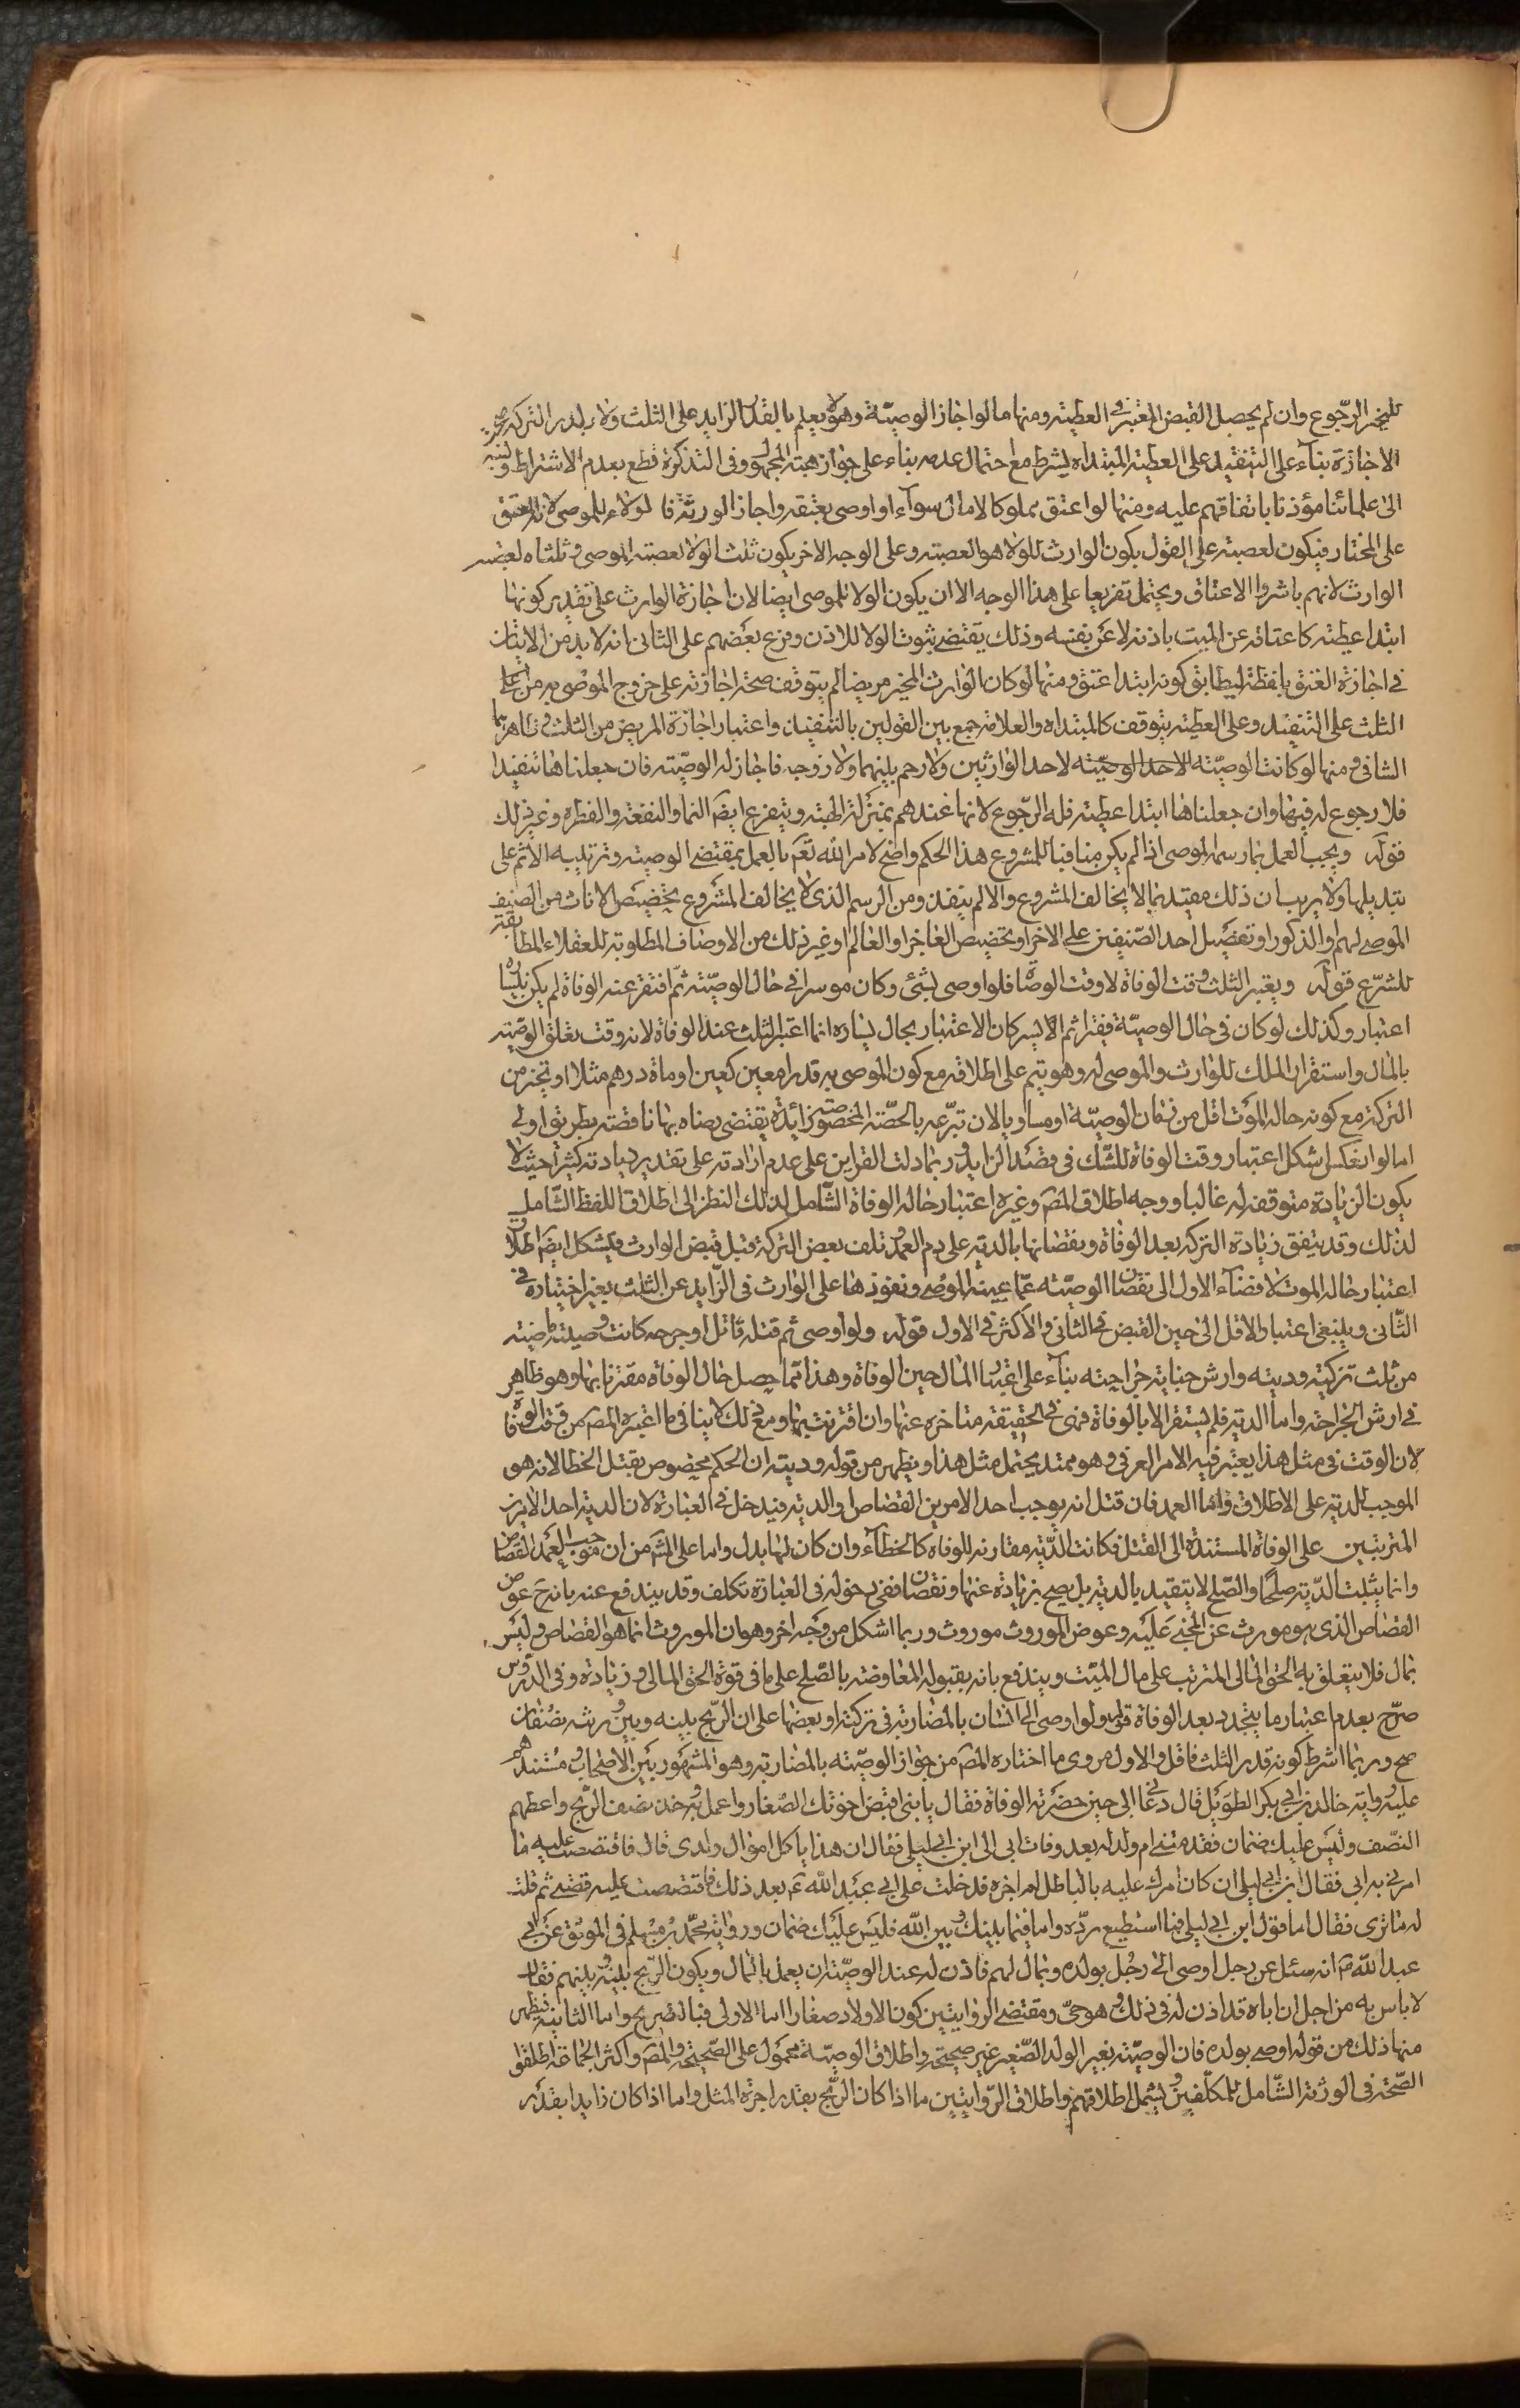 للمخير الرجوع وان لم يحصل القبض المعتبر في العطيته ومنها ما لوا جاز الوصيّة وهو لا يعلم بالقدر الزايد على الثلث ولا بقدر التركه صحت
الاجازة بناء على التنفيذ وعلى العطيته المبتداه يشرط مع احتمال عدمه بناء على جواز هبته المجهول وفى التذكرة قطع بعدم الاشتراط ونسبه
الى علمائنا مؤذنا باتفاقهم عليه ومنها لوا عتق مملوكا لامال سواه او اوصى بعتقه واجاز الورثة فالولاء للموصى لانه المعتق
على المختار فيكون لعصبته على القول بكون الوارث للولا هو العصبته وعلى الوجه الاخر يكون ثلث الولا لعصبته الموصى وثلثاه لعصبه
الوارث لانهم باشروا الاعتاق ويحتمل تفريعا على هذا الوجه الا ان يكون الولا للموصى ايضا لان اجازة الوارث على تقدير كونها
ابتدا عطيته كاعتاقه عن الميت باذنه لا عن نفسه وذلك يقتضى ثبوت الولا للاذن وفرع بعضهم على الثانى انه لا بد من الاتيان
فى اجازة العتق بلفظه ليطابق كونه ابتدا عتق ومنها لوكان الوارث المخير مريضا لم يتوقف صحته اجازته على خروج الموصى به من
الثلث على التنفيذ وعلى العطيته يتوقف كالمبتداه والعلامة جمع بين القولين بالتنفيذ واعتبار اجازة المريض من الثلث وظاهرهما
التنافى ومنها لو كانت الوصيّته لاحد الوصيّته لاحد الوارثين ولا رحم بينهما ولا زوجه فاجاز له الوصيّته فان جعلناها تنفيذا
فلا رجوع له فيها وان جعلناها ابتدا عطيته فله الرّجوع لانها عندهم بمنزلة الهبته ويتفرع ايضا النما والنفقة والفطره وغير ذلك
قوله ويجب العمل بما رسمه الموصى اذا لم يكن منافيا للمشروع هذا الحكم واضح لامر الله تعم بالعمل بمقتضى الوصيته وترتيبه الاثم على
تبديلها ولا يريب ان ذلك مقيد بما لا يخالف المشروع والا لم ينفذ ومن الرسم الذى لا يخالف المشروع تخصيص الاناث من الصنيف
الموصى لهم او الذكور او تفضيل احد الصّنيفين على الاخر او تخصيص الفاخر او العالم او غير ذلك من الاوصاف المطلوبة للعقلاء المطابقة
للشرّع قوله ويعتبر الثلث وقت الوفاة لا وقت الوصاة فلو اوصى بشئ وكان موسرا في حال الوصيّته ثمّ افتقر عند الوفاة لم يكن بيساره
اعتبار وكذلك لو كان فى حال الوصيّة فقيرا ثم ايسر كان الاعتبار بحال يساره انما اعتبر الثلث عند الوفاة لانه وقت تعلق الوصيّته
بالمال واستقرار الملك للوارث والموصى له وهو يتم على اطلاقه مع كون الموصى به قدرا معين كعين او مائة درهم مثلا او بجزء من
التركة مع كونه حاله الموت اقل من زمان الوصيّة او مساويا لان تبرّعه بالحصّته المخصوصة زائدة يقتضى رضاه بها ناقصته بطريق اولى
اما لوا نعكس اشكل اعتبار وقت الوفاة للشّك فى قصد الزايد وربما دلت القراين على عدم ارادته على تقدير زيادته كثيرا حيث لا
يكون الزيادة متوقعه له غالبا ووجه اطلاق المصَ وغيره اعتبار حاله الوفاة الشّامل لذلك النظر الى اطلاق اللفظ الشّامل
لذلك وقد يتفق زيادة التركه بعد الوفاة ونقصانها بالديته على دم العمد وتلف بعض التركة قبل قبض الوارث فيشكل ايضا اطلاق
اعتبار حاله الموت لافضاء الاول الى نقصان الوصيّته عمّا عينه الموصى ونفوذها على الوارث فى الزّايد عن الثلث بغير اختياره فى
الثّانى وينبغى اعتبار الاقل الى حين القبض فى الثانى والاكثر في الاول قوله ولو اوصى ثم قتله قاتل او جرحه كانت وصيته ماضيته
من ثلث تركته وديته وارش جنايته جراحته بناء على اعتبار المال حين الوفاة وهذا مما حصل حال الوفاة مقترنا بها وهو ظاهر
في ارش الجراحة واما الديته فلم يستقر الا بالوفاة فهى في الحقيقته متاخره عنها وان اقترنت بها ومع ذلك لا ينافى ما اعتبره المصَ من وقت الوفاة
لان الوقت فى مثل هذا يعتبر فيه الامر العرفى وهو ممتد يحتمل مثل هذا ويظهر من قوله وديته ان الحكم مخصوص بقتل الخطا لانه هو
الموجب للديته على الاطلاق واما العمد فان قتل انه يوجب احد الامرين القصاص او الديته فيدخل في العبارة لان الديته احد الامرين
المترتبين على الوفاة المستندة الى القتل فكانت الدّيته مقارنه للوفاه كالخطاء وان كان لها بدل واما على المشهَ من ان موجب العمد القصاص
وانما يثبت الدّيته صلحا والصّلح لا يتقيد بالديته بل يصح بزيادة عنها ونقصان ففى دخوله فى العبارة تكلف وقد يندفع عنه بانه حَ عوض
القصاص الذى هو مورث عن المجنى عليه وعوض الموروث موروث وربما اشكل من وجه اخر وهو ان الموروث انما هو القصاص وليس
بمال فلا يتعلق به الحق المالى المترتب على مال الميّت ويندفع بانه بقبوله المعاوضته بالصّلح على ما فى قوة الحق المالى وزيادة وفى الدّروس
صرّح بعدم اعتبار ما يتجدد بعد الوفاة قوله ولو اوصى الى انسان بالمضاربة فى تركته او بعضها على ان الرّبح بينه وبين ورثته نصفان
صح وربما اشرط كونه قدر الثلث فاقل والاول مروى ما اختاره المصَ من جواز الوصيّته بالمضاربة وهو المشهور بين الاصحاب ومستندهم
عليه رواية خالد بن ابى بكر الطويل قال دعانى ابى حين حضرته الوفاة فقال يا بنى اقبض اخوتك الصّغار واعمل به وخذ نصف الرّبح واعطهم
النصّف وليس عليك ضمان فقدمتنى ام ولد له بعد وفات ابى الى ابن ابى ليلى فقال ان هذا ياكل اموال ولدى قال فاقتصصت عليه ما
امرنى به ابى فقال ابن ابى ليلى ان كان امرك عليه بالباطل لم اجزه فدخلت على ابى عبد الله عَ بعد ذلك فاقتصصت عليه قصتى ثم قلت
له ما ترى فقال اما قول ابن ابى ليلى فما استطيع ردّه واما فيما بينك وبين الله فليس عليك ضمان ورواية محمّد بن مسلم فى الموثق عن ابى
عبد الله عَ انه سئل عن رجل اوصى الى رجل بولده وبمال لهم فاذن له عند الوصيّته ان يعمل بالمال ويكون الرّبح بينه وبينهم فقال
لا باس به من اجل ان اباه قد اذن له فى ذلك وهو حىّ ومقتضى الروايتين كون الاولاد صغارا اما الاولى فبالتصريح واما الثانية فيظهر
منها ذلك من قوله اوصى بولده فان الوصيّته بغير الولد الصّغير غير صحيحته واطلاق الوصيّة محمول على الصّحيحته والمصَ واكثر الجماعة اطلقوا
الصّحته فى الورثة الشّامل للمكلّفين ويشمل اطلاقهم واطلاق الرّوايتين ما اذا كان الرّبح بقدر اجرة المثل واما اذا كان زايدا بقدر